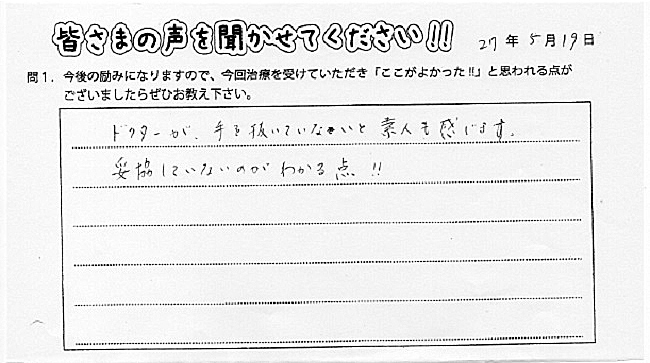 皆さまの声を聞かせてください!! 27年5月19日
問1. 今後の励みになりますので、今回治療を受けていただき「ここがよかった!!」と思われる点が
ございましたらぜひお教え下さい。
ドクターが、手を抜いていないと素人も感じます。
妥協していないのがわかる点!!